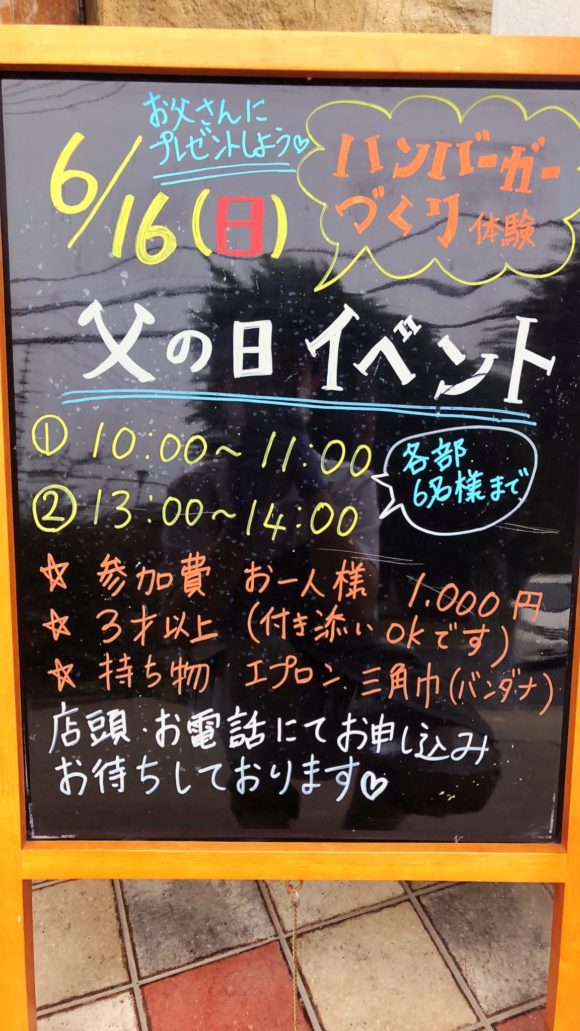 お父さんに
プレゼントしよう♡
6/16(日)
ハンバーガー
づくり体験
父の日イベント
① 10:00～11:00
② 13:00～14:00
各部
6名様まで
☆ 参加費 お一人様 1.000円
☆ 3才以上 (付き添いokです)
☆ 持ち物 エプロン.三角巾(バンダナ)
店頭・お電話にてお申し込み
お待ちしております♡